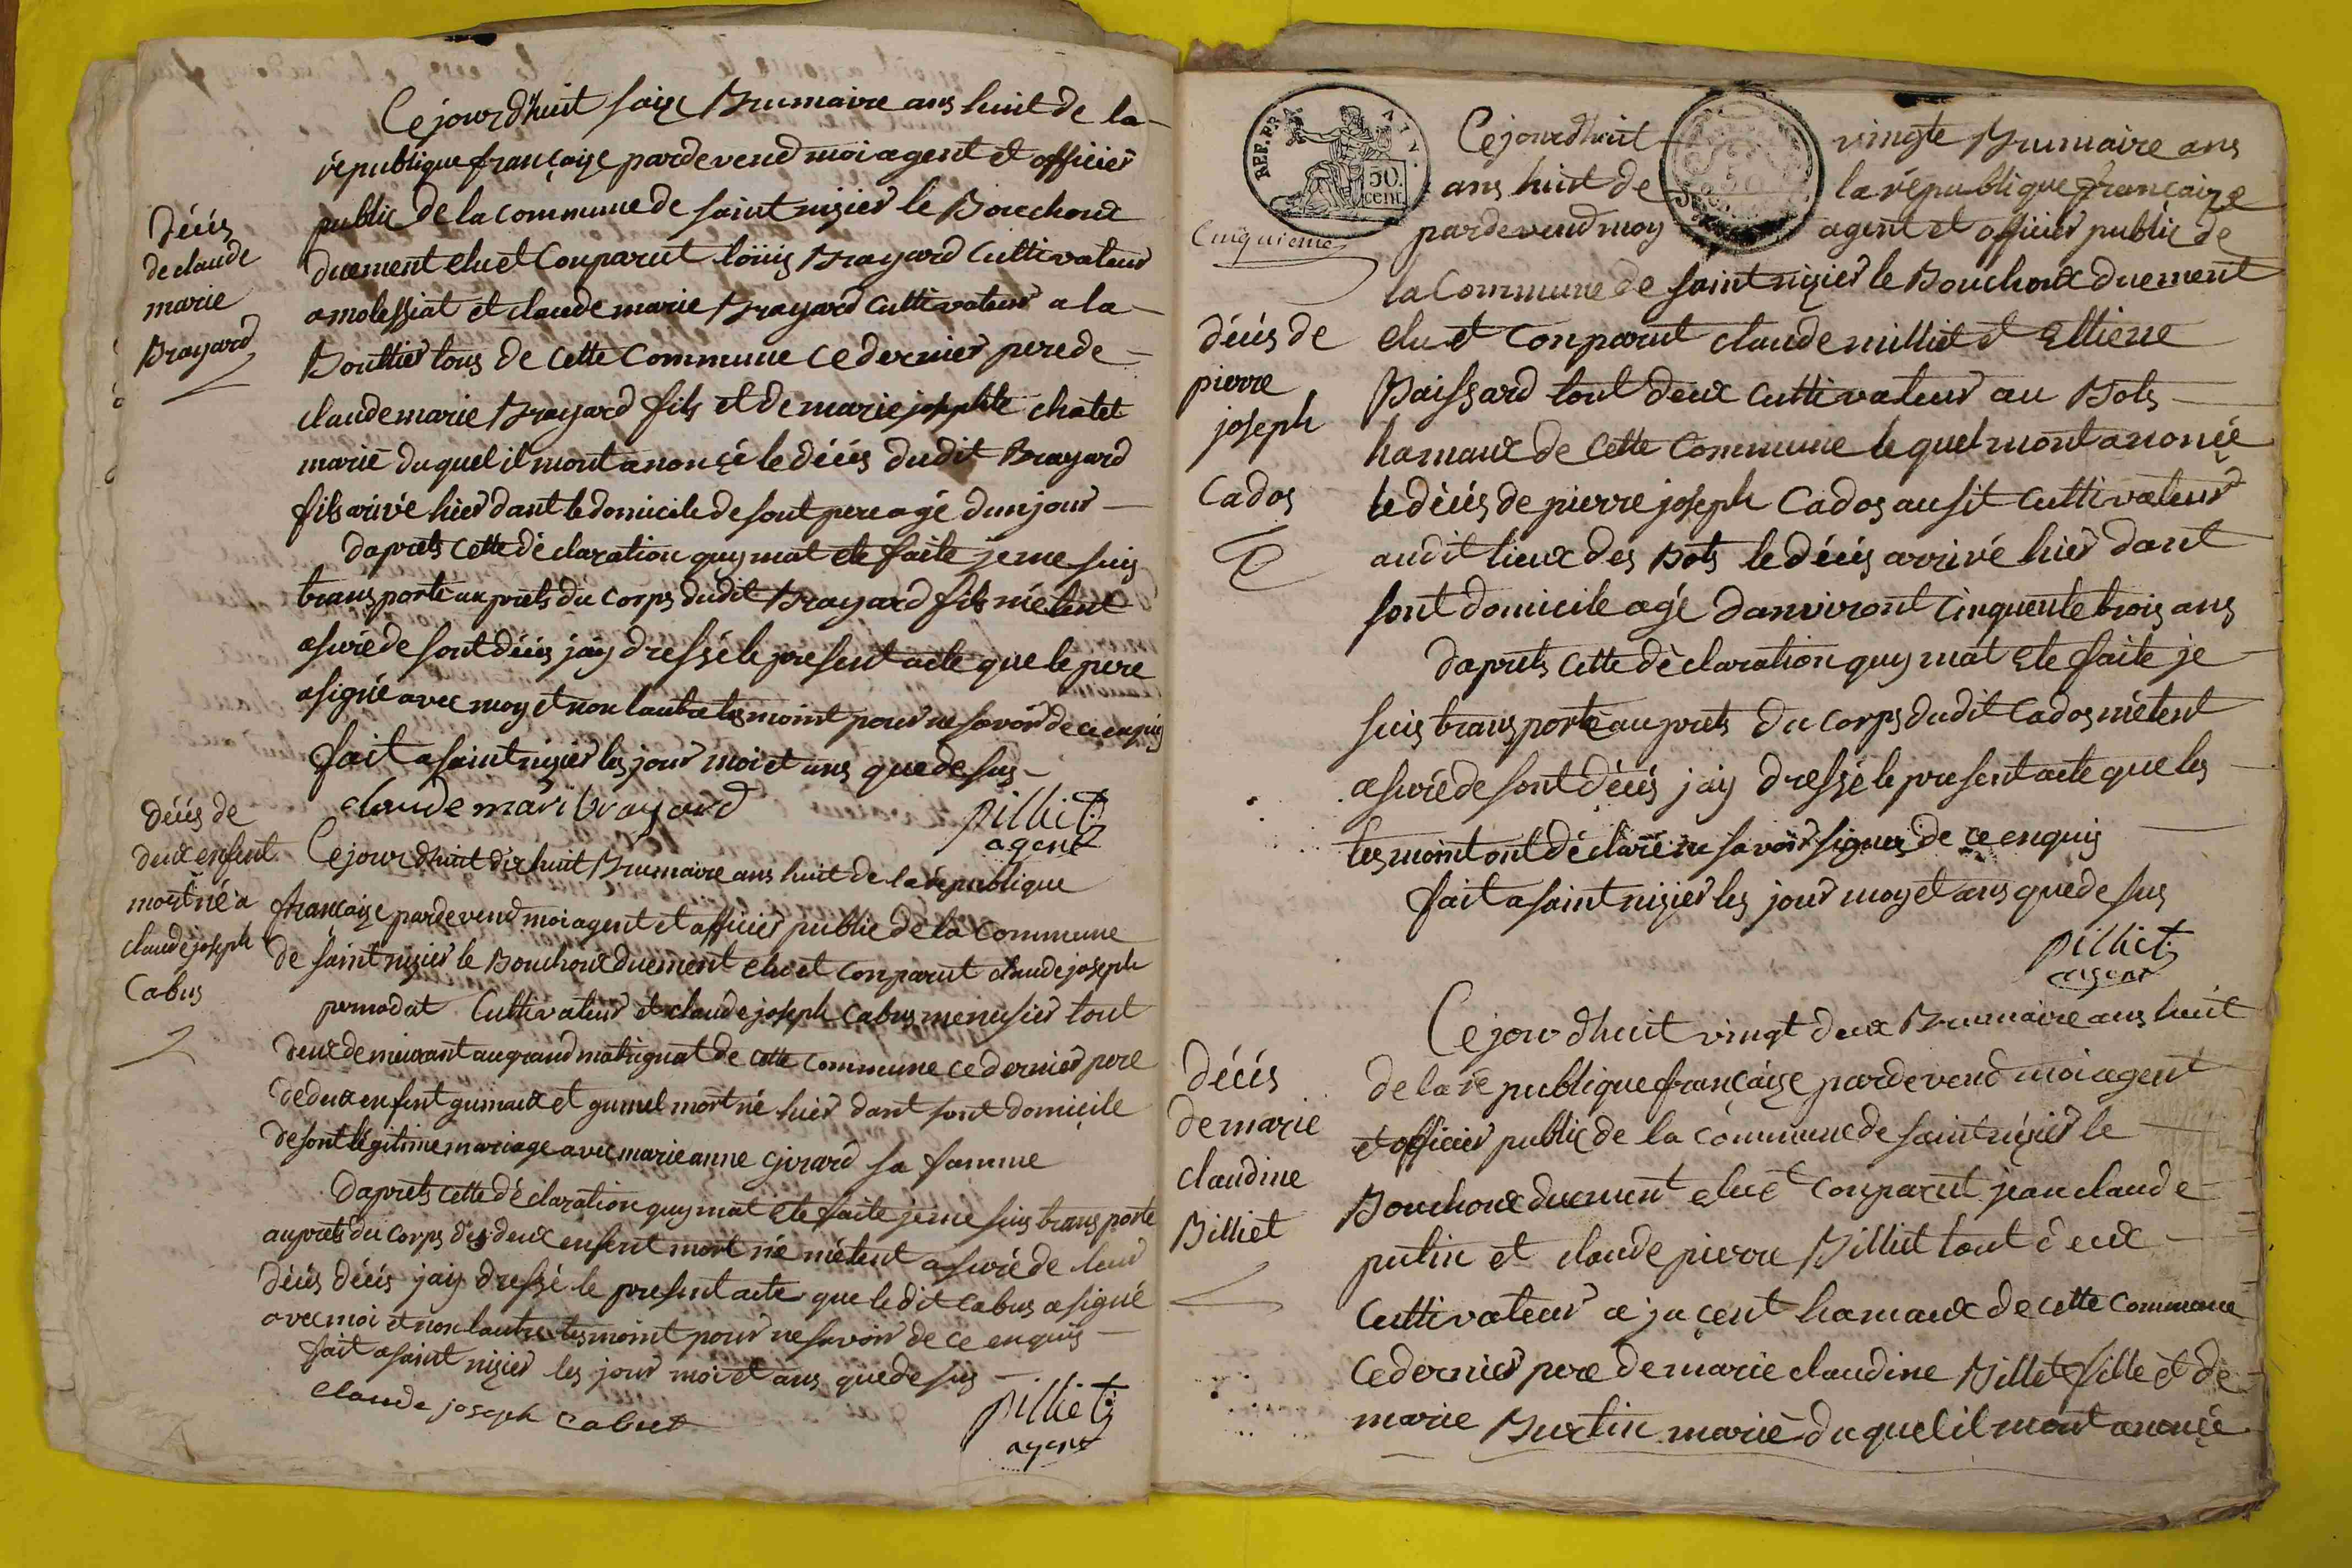 Ce jour d'huit saize Brumaire ans huit de la
république française pardevend moi agent et officier
public de la commune de saint nizier le Bouchout
duement elu et Conparut loüis Brayard Cultivateur
a molessiat et claude marie Brayard cultivateur a la
Bouttier tous de cette Commune ce dernier pere de
claude marie Brayard fils et de marie josephte chatet
marié du quel il mont anoncé le décés dudit Brayard
fils arivé hier dant le domicile de sont pere agé dun jour
daprets cette déclaration quy mat ete faite je me suis
transporté auprets du corps dudit Brayard fils métent
asuré de sont décés jay dressé le present acte que le pere
a signé avec moy et non lautre tesmoint pour ne savoir de ce enquis
fait a saint nizier les jour moi et ans que de sus
claude mari brayard
pilliet
agent
Décés
de claude
marie
Brayard
Décés de
deux enfent
mort né a
claude joseph
Cabus
Ce jour d'huit dix huit Brumaire ans huit de la republique
française pardevend moi agent et officier public de la Commune
de saint nizier le Bouchoux duement elu et conparut claude joseph
pernodat Cultivateur et claude joseph Cabus menusier tout
deux demeurant au grand matignat de cette commune ce dernier pere
de deux enfent gumaux et gumel mort né hier dant sont domicile
de sont légitime mariage avec marie anne girard sa famme
Daprets cette déclaration quy mat ete faite je me suis transporté
auprets du corps des deux enfent mort né métent asuré de leur
décés décés jay dressé le present acte que le dit Cabus a signé
avec moi et non lautre tesmoint pour ne savoir de ce enquis
fait a saint nizier les jour moi et ans que de sus
Claude joseph Cabut
pilliet
agent
REP. FRA
50
cent.
Cinquieme
Ce jour d'huit vingte Brumaire ans
ans huit de la république françaize
pardevend moy agent et officier public de
la Commune de saint nizier le Bouchoux duement
elu et conparut claude milliet et Ettiene
Baissard tout deux cultivateur au Bots
hamaux de cette Commune le quel mont anoncé
le décés de pierre joseph Cados ausit cultivateur
audit lieux des Bots le décés arrivé hier dant
sont domicile agé danviront cinquente trois ans
daprets cette déclaration quy mat ete faite je
suis transporté auprets du corps dudit Cados métent
asuré de sont décés jay dressé le present acte que les
tesmoint ont déclaré ne savoir signer de ce enquis
fait a saint nizier les jour moy et ans que de sus
pilliet
agent
décés de
pierre
joseph
Cados
Décés
de marie
claudine
Billiet
Ce jour d'huit vingt deux Brumaire ans huit
de la république française pardevend moi agent
et officier public de la commune de saint nizier le
Bouchoux duement elu et Conparut jean claude
putin et claude pierre Billiet tout deux
Cultivateur a jacent hamaux de cette Commune
ce dernier pere de marie claudine Billet fille et de
marie Burtin marié du quel il mont anoncé